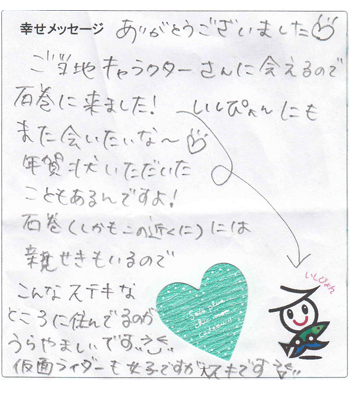 幸せメッセージ ありがとうございました
ご当地キャラクターさんに会えるので
石巻に来ました! いしぴょんにも
また会いたいな〜
年賀状いただいた
こともあるんですよ!
石巻(しかもこの近くに)には
親せきもいるので
いしぴょん
こんなステキな
ところに住んでるのが
うらやましいです
仮面ライダーも女子ですが大スキです